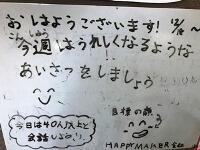 おはようございます! 12/18~
こんしゅう
今週はうれしくなるような
あいさつをしましょう
目標の顔
今日は40人以上と
会話しよう!
HAPPY MAKER